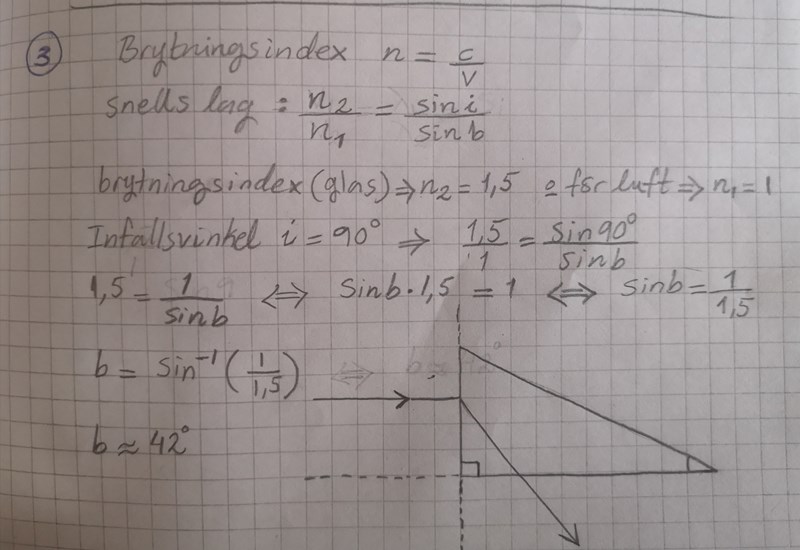 3 Brytningsindex n = c/v
snells lag : n2/n1 = sin i/sin b
brytningsindex (glas) ⇒ n2 = 1,5 o för luft ⇒ n1 = 1
Infallsvinkel i = 90° ⇒ 1,5/1 = sin 90°/sin b
1,5 = 1/sin b ⇔ sin b · 1,5 = 1 ⇔ sin b = 1/1,5
b = sin⁻¹ (1/1,5)
b ≈ 42°